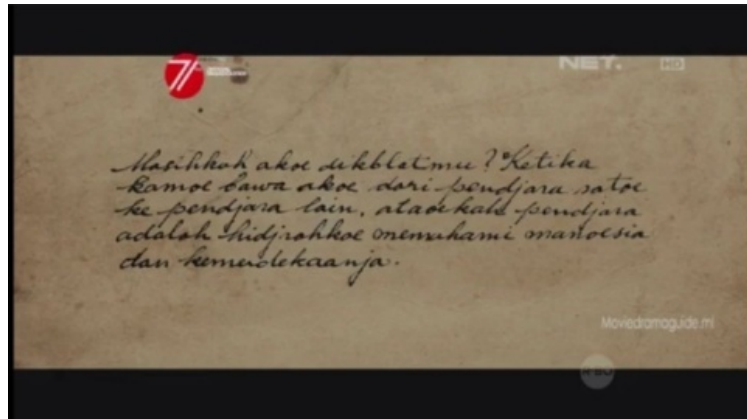 71
NET. HD
Masihkah akoe dikblatmu? Ketika
kamoe bawa akoe dari pendjara satoe
ke pendjara lain, ataoekah pendjara
adalah hidjrahkoe memahami manoesia
dan kemerdekaanja.
Moviedramaguide.ml